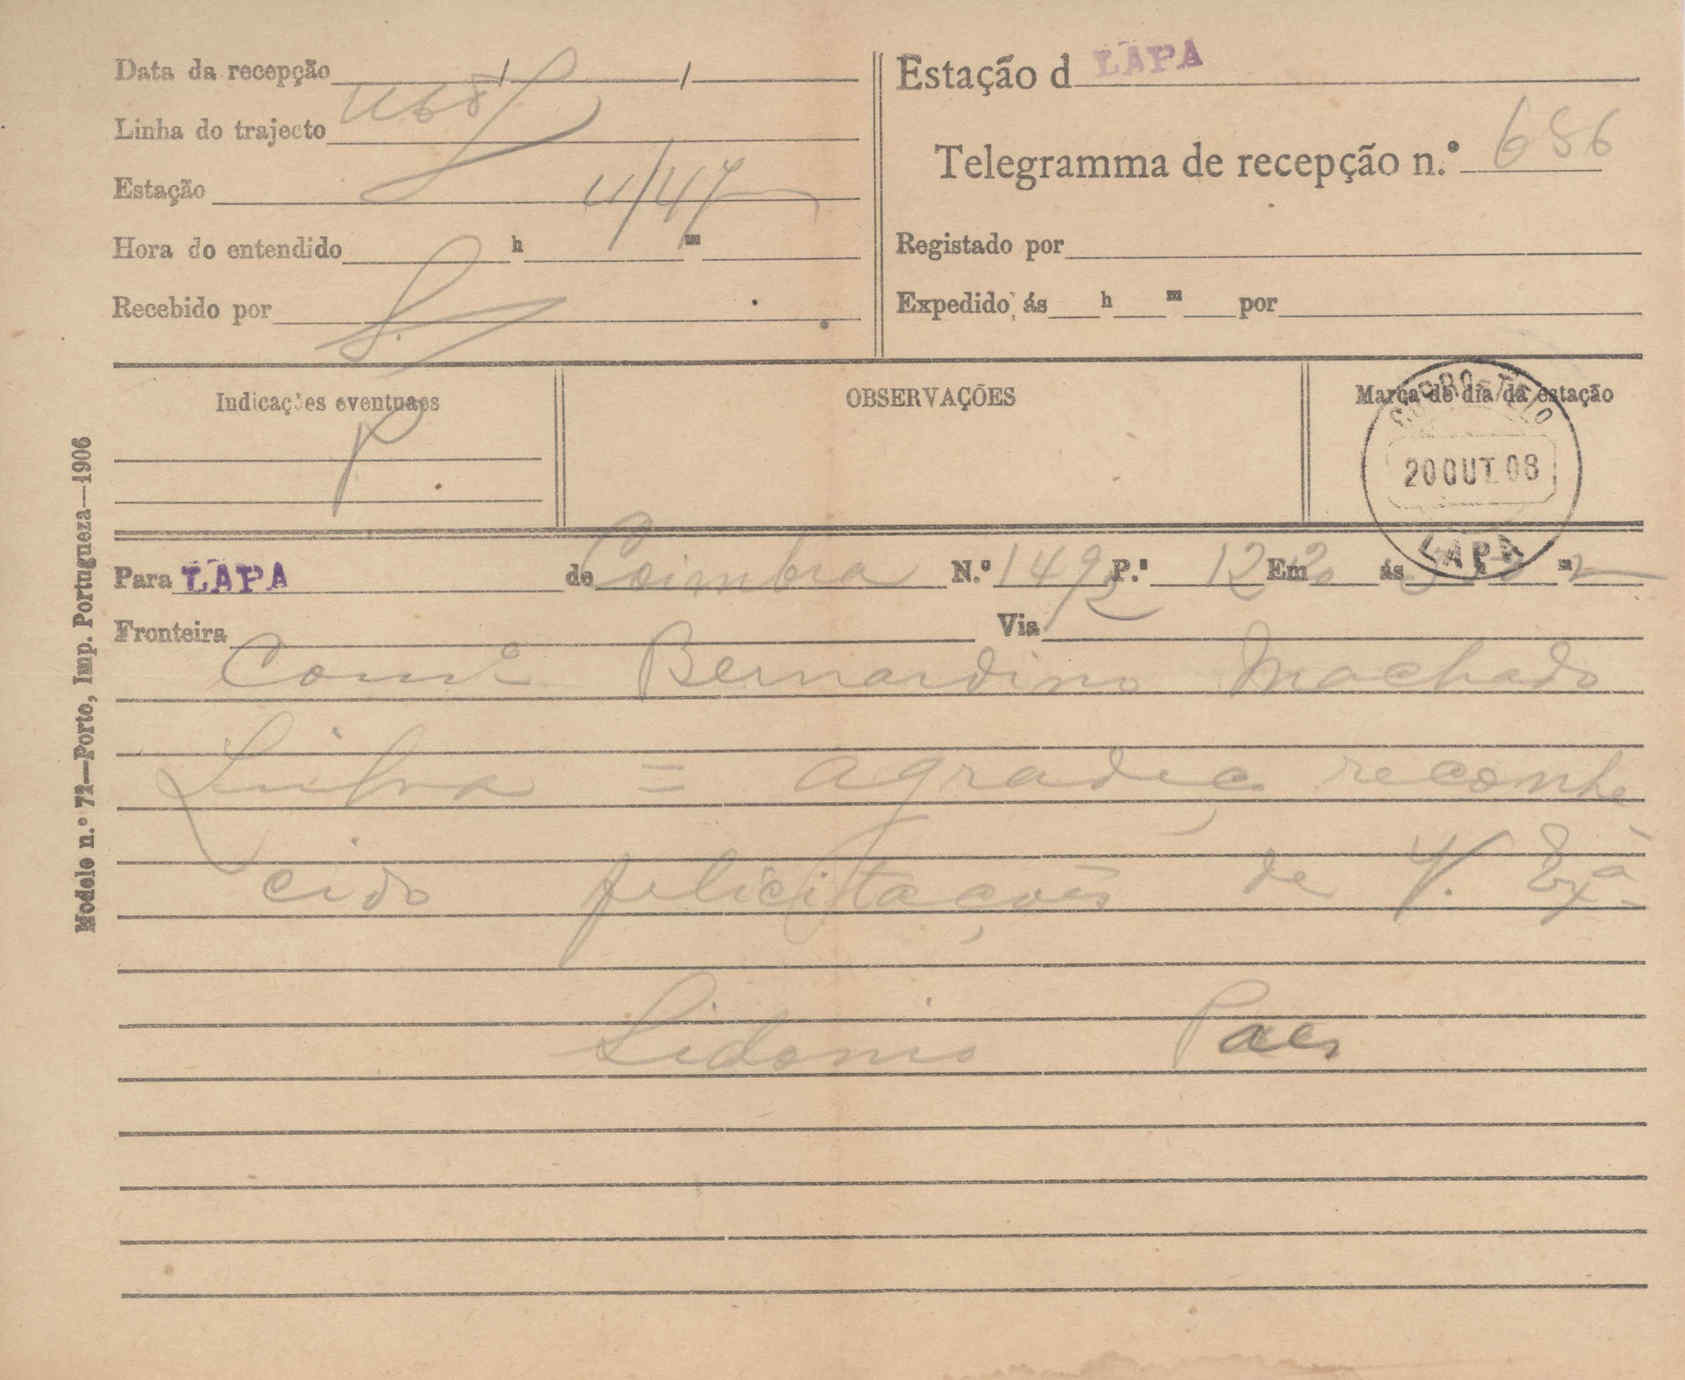 Data da recepção / /
Linha do trajecto
Estação 11/47
Hora do entendido h m
Recebido por
Estação d LAPA
Telegramma de recepção n.º 686
Registado por
Expedido ás h m por
Indicações eventuaes
P
OBSERVAÇÕES
Marca de dia da estação
20 OUT. 08
LAPA
Para LAPA de Coimbra N.º 1492 P.ª 12 Em 20 ás h m
Fronteira Via
Cons.º Bernardino Machado
Lisboa = agradeço reconhe
cido felicitações de V. Ex.ª
Sidonio Paes
Modelo n.º 72—Porto, Imp. Portugueza—1906